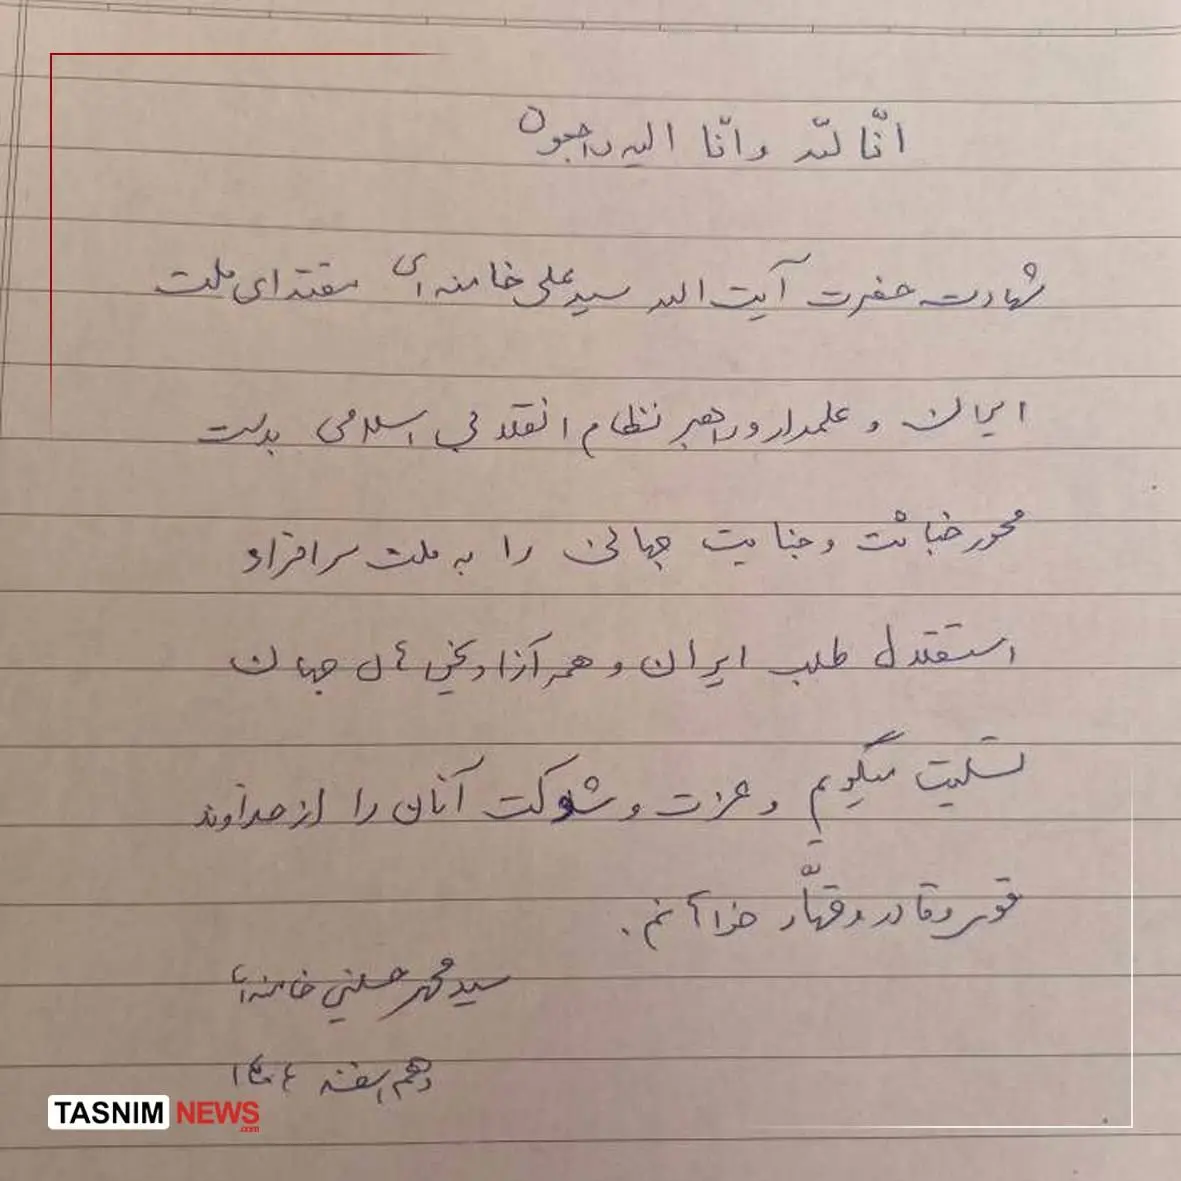 انّا لله و انّا الیه راجعون
شهادت حضرت آیت الله سید علی خامنه ای مقتدای ملت
ایران و علمدار و راهبر نظام انقلابی اسلامی بدست
محور خباثت و جنایت جهانی را به ملت سرافراز و
استقلال طلب ایران و همه آزادیخواهان جهان
تسلیت میگویم و عزت و شوکت آنان را از خداوند
قوی و قادر و قهّار خواهانم.
سید محمد حسینی خامنه ای
دهم اسفند ۱۴۰۴
TASNIM NEWS
.com